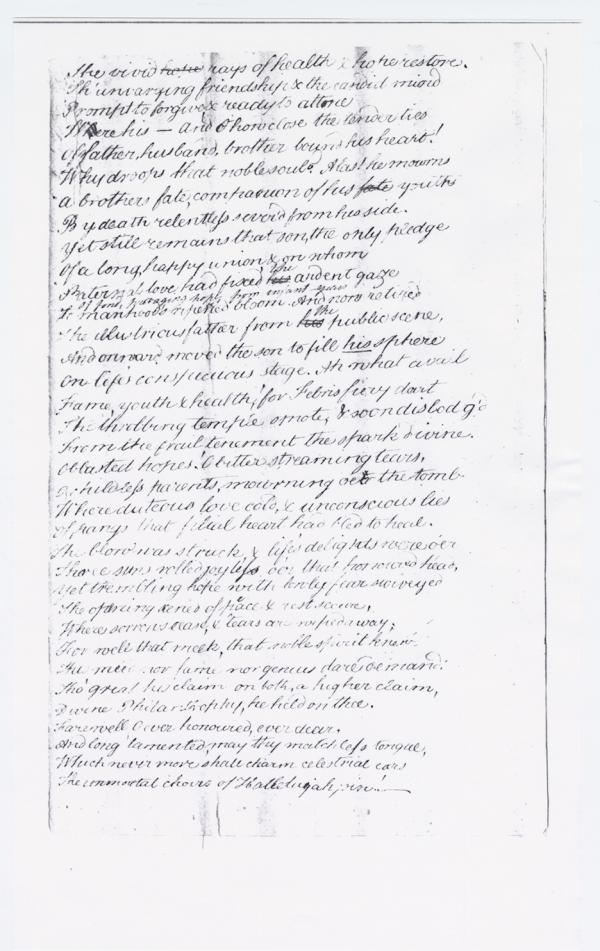 The vivid hope rays of health & hope restore.
Th' unvarying friendship & the candid mind
Prompt to forgive & ready to attone
Were his — and O how close the tender ties
Of father, husband, brother bound his heart!
Why droops that noble soul? Alas! he mourns
a brothers fate, companion of his fate youth
By death relentless sever'd from his side.
Yet still remains that son, the only pledge
Of a long, happy union & on whom
Paternal love had fixed his the ardent gaze
of fond, hopes from infant years
To manhoods ripened bloom. And now retired
The illustrious father from his the public scene,
And onward moved the son to fill his sphere
On life's conspicuous stage. Ah what avail
Fame, youth & health, for Febris fiery dart
The throbbing temples smote, & soon dislodg'd
From the frail tenement the spark divine.
O blasted hopes! O bitter streaming tears,
O childless parents, mourning o'er the tomb
Where duteous love cold, & unconscious lies
Of pangs that filial heart had bled to heal.
The blow was struck & life's delights were o'er
Thrice suns rolled joyless o'er that honoured head,
Yet trembling hope with only fear surveyed
The opening scenes of peace & rest secure,
Where sorrows cease, & tears are wiped away;
For well that meek, that noble spirit knew
nor fame nor genius dare demand:
Tho' great his claim on both, a higher claim,
Divine Philanthrophy, he held on thee.
Farewell O ever honoured, ever dear,
And long lamented, may thy matchless tongue,
Which never more shall charm celestial ears
The immortal choirs of Hallelujah join! —